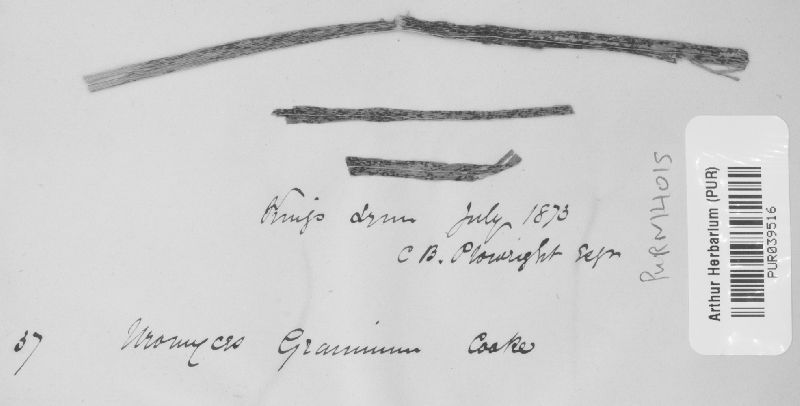 Kings Lynn July 1873
C B. Plowright Esqr
37 Uromyces Graminum Cooke
PURN14015
Arthur Herbarium (PUR)
PUR039516